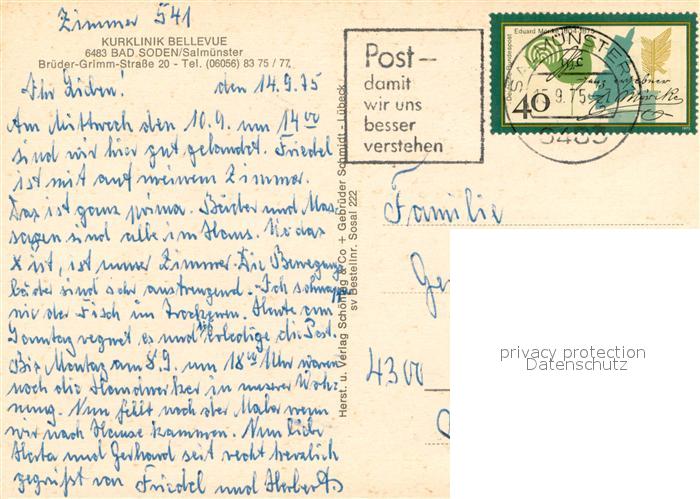 Zimmer 541
KURKLINIK BELLEVUE
6483 BAD SODEN/Salmünster
Brüder-Grimm-Straße 20 - Tel. (06056) 83 75 / 77
Ihr Lieben! den 14.9.75
Am Mittwoch den 10.9. um 14⁰⁰
sind wir hier gut gelandet. Friedel
ist mit auf meinem Zimmer.
Das ist ganz prima. Bäder und Mas-
sagen sind alle im Haus. Wo das
x ist, ist unser Zimmer. Die Bewegungs
bäder sind sehr anstrengend. Ich schnappe
wie der Fisch im Trockenen. Heute am
Sonntag regnet es und erledige die Post.
Bis Montag am 8.9. um 18⁰⁰ Uhr waren
noch die Handwerker in unserer Woh-
nung. Nun fehlt noch der Maler wenn
wir nach Hause kommen. Nun liebe
Herta und Gerhard seit recht herzlich
gegrüßt von Friedel und Herbert
Herst. u. Verlag Schöning & Co + Gebrüder Schmidt - Lübeck
sv Bestellnr. Sosal 222
Post –
damit
wir uns
besser
verstehen
Eduard Mörike 1804-1875
Deutsche Bundespost
40
15.9.75
6483
Familie
Ge
4300
privacy protection
Datenschutz